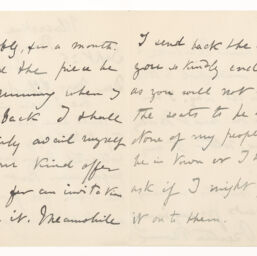 for a month.
the piece be
running when I
back I shall
avail myself
kind offer
for an invitation
it. Meanwhile
I send back the
you so kindly
as you will not
the seats to be
None of my people
be in town or I
ask if I might
it on to them.